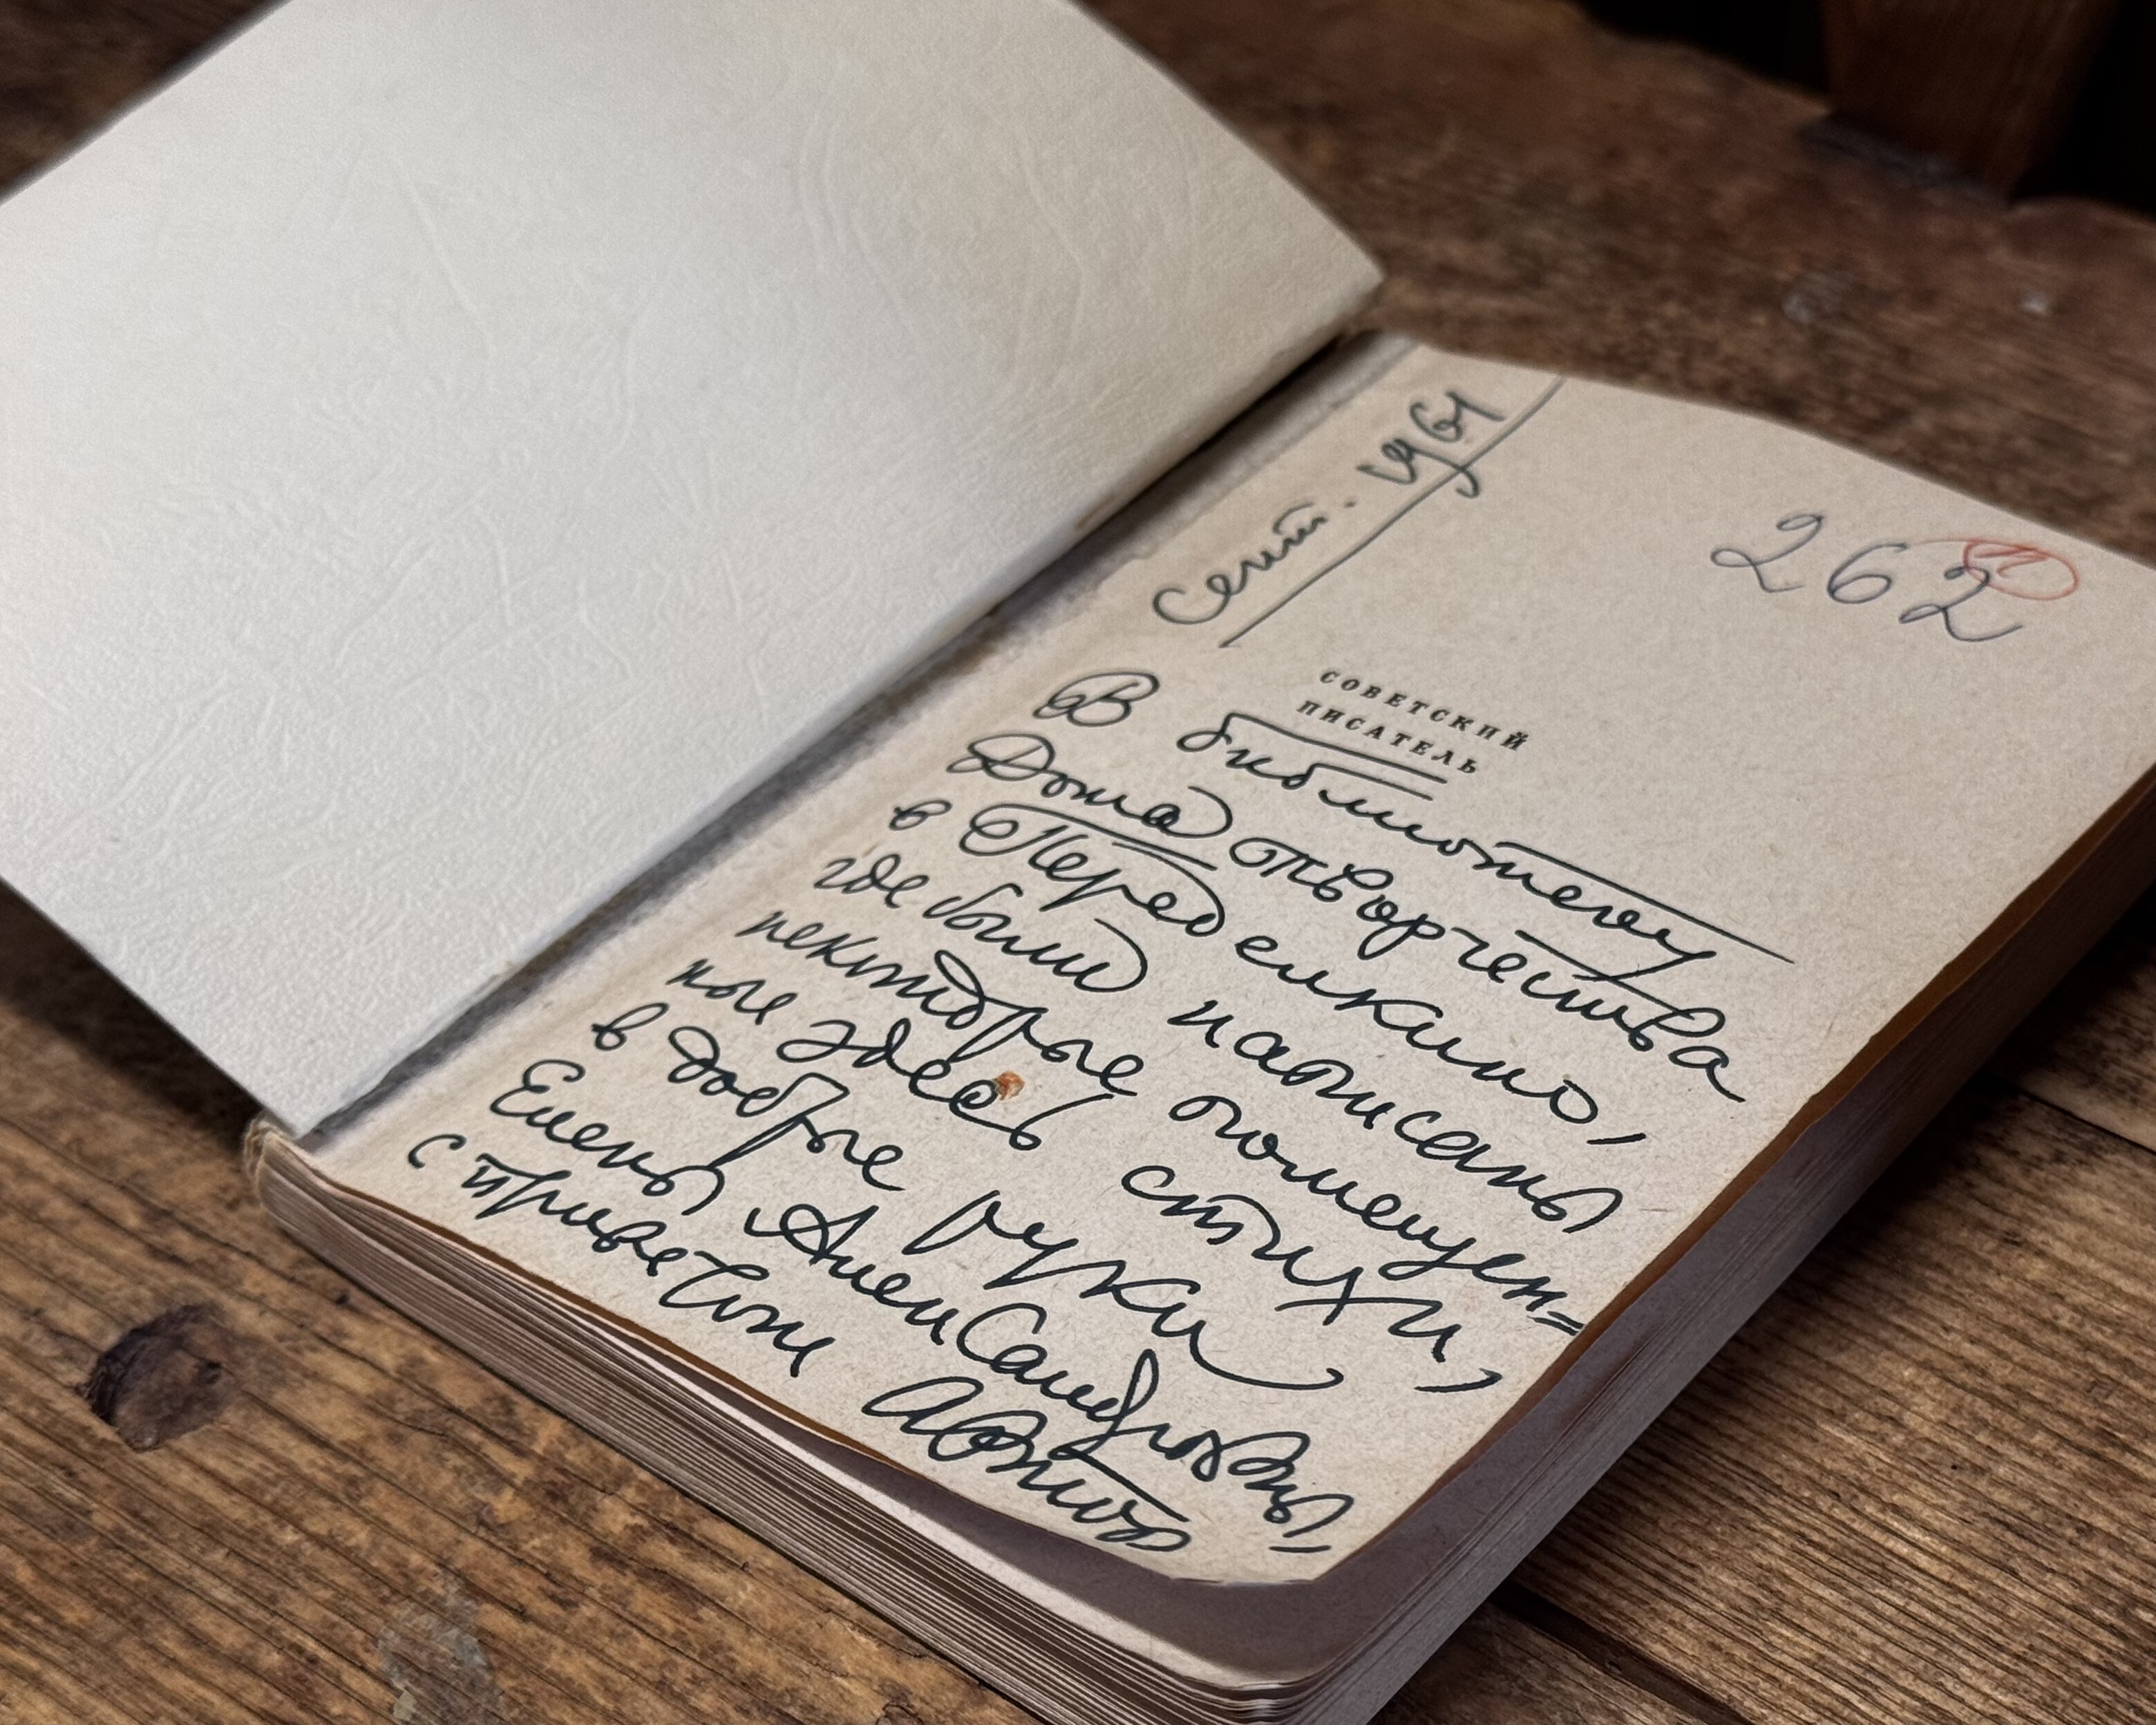 Сент. 1961
262
СОВЕТСКИЙ
ПИСАТЕЛЬ
В библиотеку
Дома творчества
в Переделкино,
где были написаны
некоторые помещен=
ные здесь стихи,
в добрые руки
Елены Александровны,
с приветом
Автор